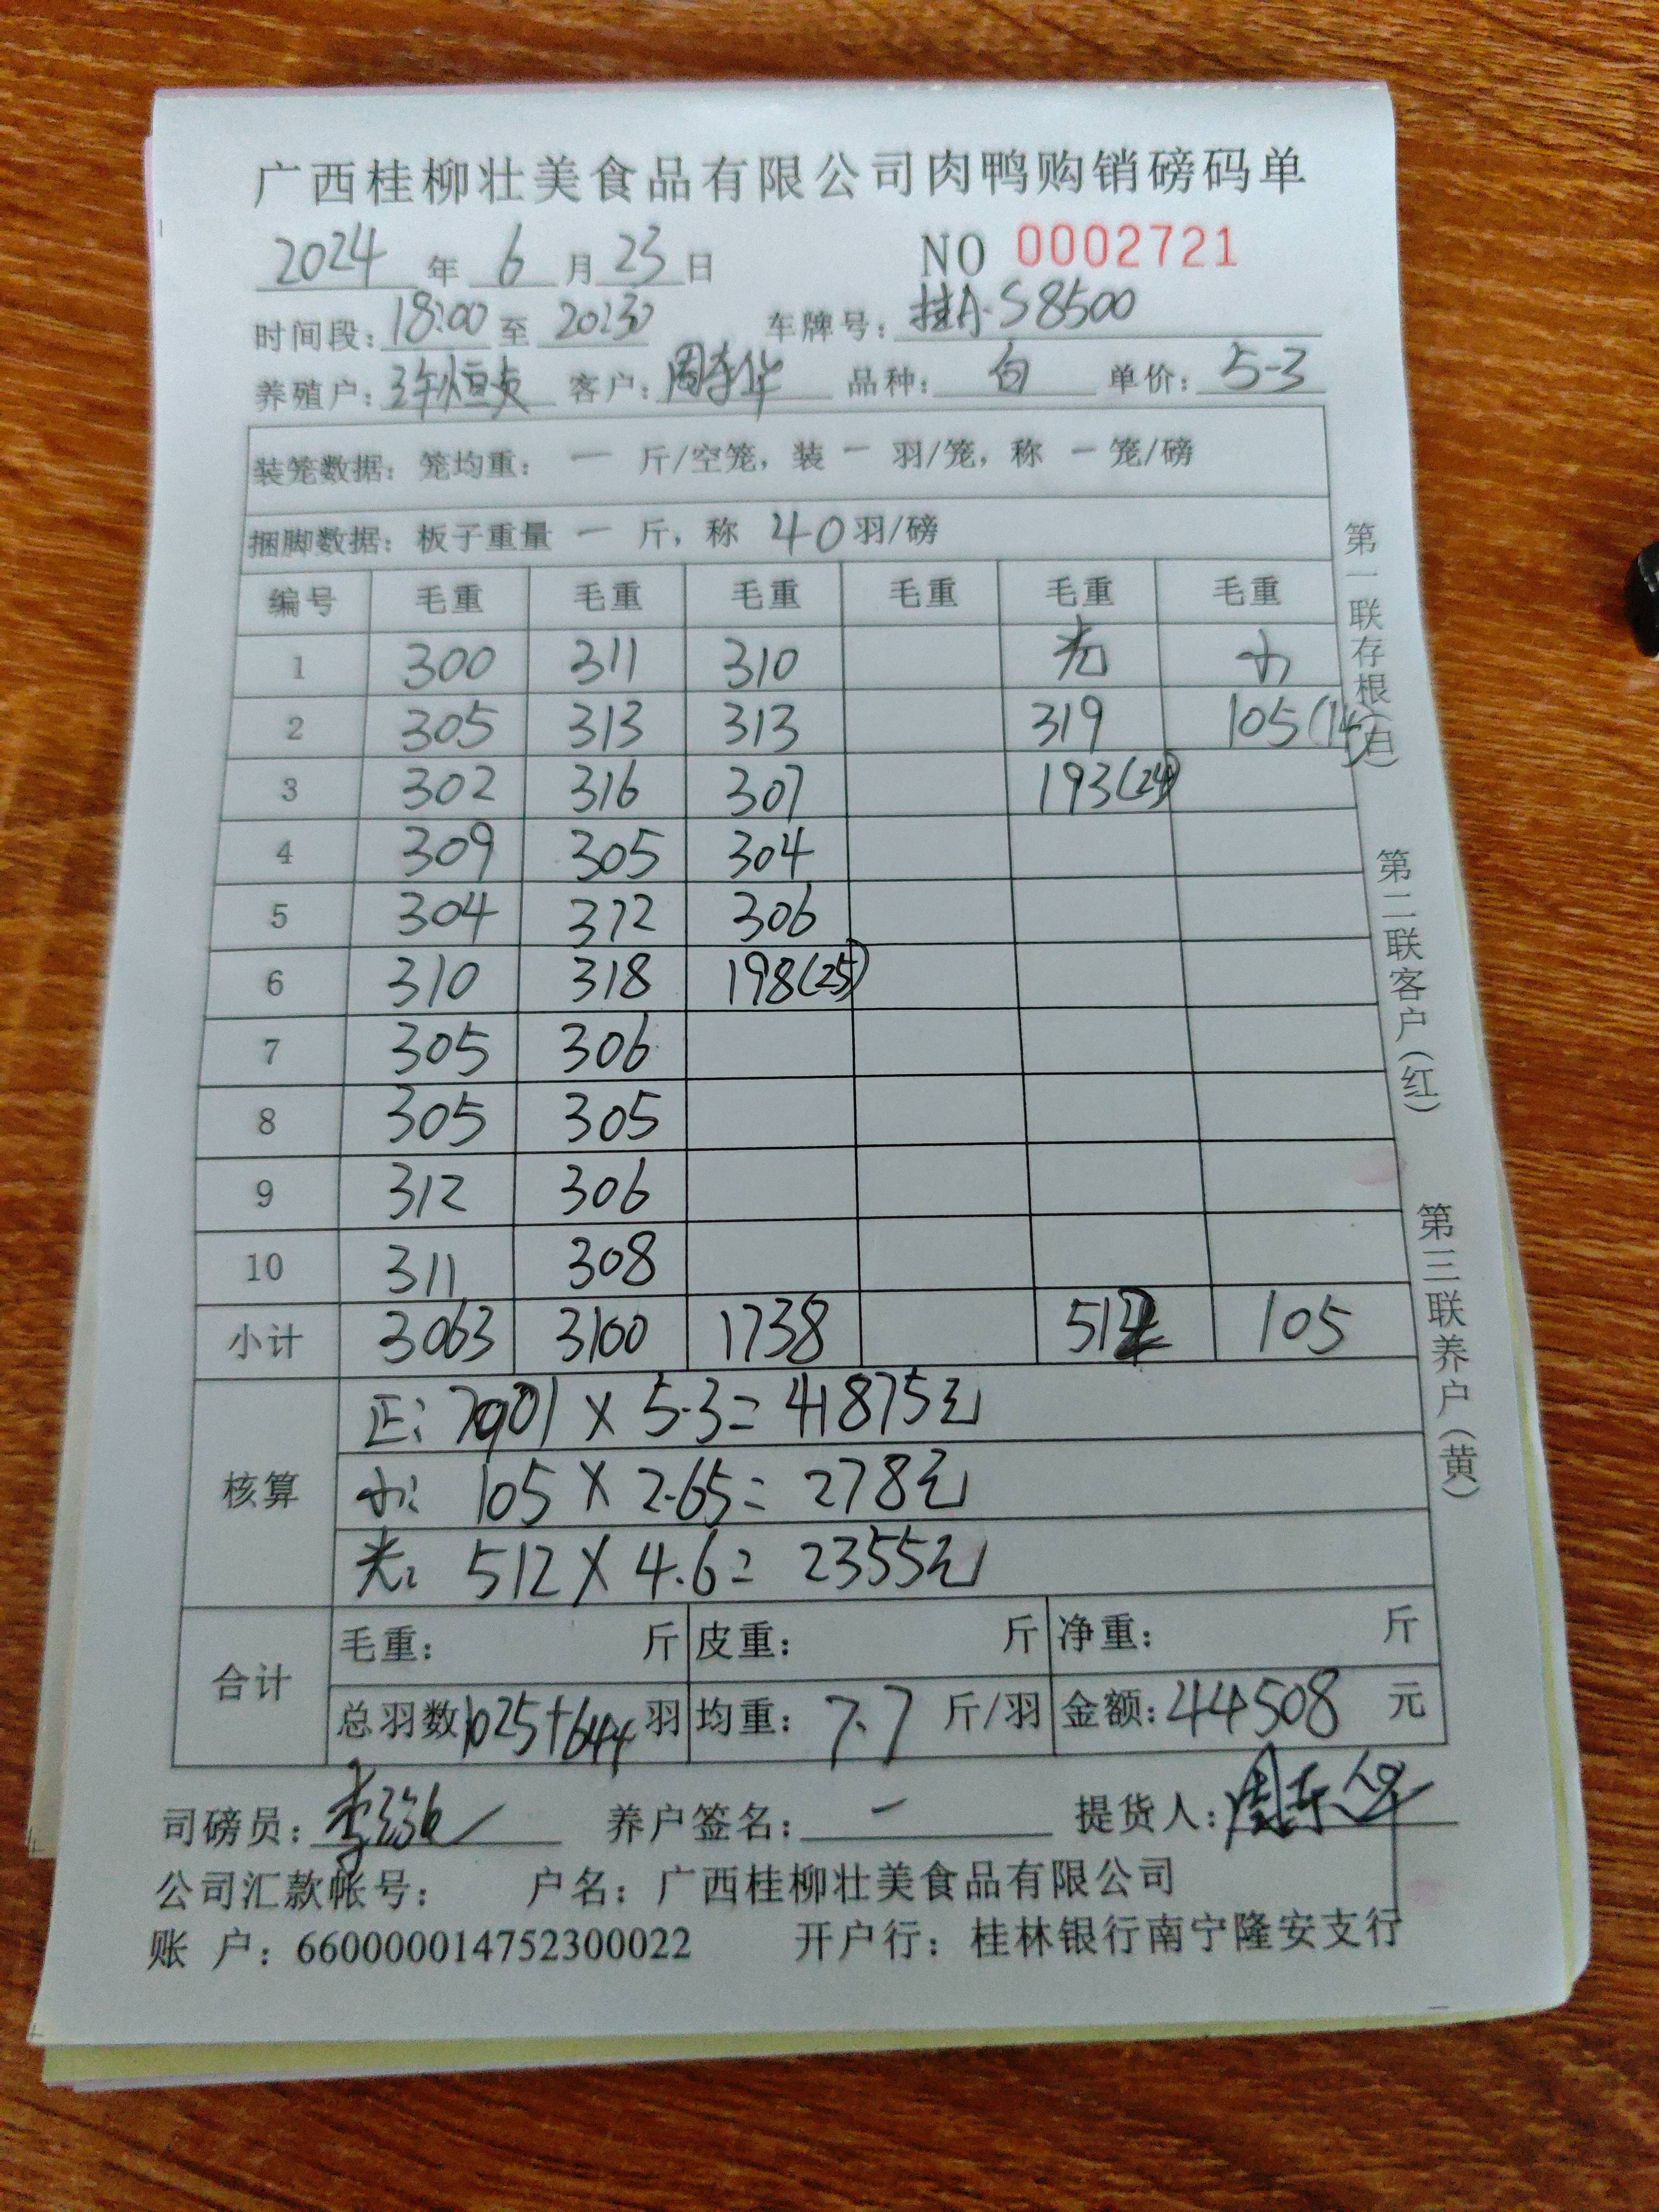 广西桂柳壮美食品有限公司肉鸭购销磅码单
2024 年 6 月 23 日 NO 0002721
时间段: 18:00 至 20:30 车牌号: 桂A·S8500
养殖户: 许恒 客户: 周东华 品种: 白 单价: 5.3
装笼数据: 笼均重: 一 斤/空笼, 装 一 羽/笼, 称 一 笼/磅
捆脚数据: 板子重量 一 斤, 称 40 羽/磅
编号 毛重 毛重 毛重 毛重 毛重 毛重
1 300 311 310 光 小
2 305 313 313 319 105(14)
3 302 316 307 193(24)
4 309 305 304
5 304 312 306
6 310 318 198(25)
7 305 306
8 305 305
9 312 306
10 311 308
小计 3063 3100 1738 512 105
核算
正: 7901 X 5.3= 41875元
小: 105 X 2.65= 278元
光: 512 X 4.6= 2355元
合计
毛重: 斤 皮重: 斤 净重: 斤
总羽数 1025+64 羽 均重: 7.7 斤/羽 金额: 44508 元
司磅员: 李 养户签名: 一 提货人: 周东华
公司汇款帐号: 户名: 广西桂柳壮美食品有限公司
账 户: 660000014752300022 开户行: 桂林银行南宁隆安支行
第一联存根(白)
第二联客户(红)
第三联养户(黄)